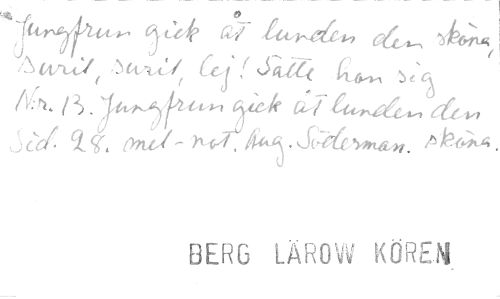 Jungfrun gick åt lunden den sköna,
surit, surit, lej! Satte hon sig
N:r. 13. Jungfrun gick åt lunden den
Sid. 28. mel-not. Aug. Söderman. sköna.
BERG LÄROW KÖREN